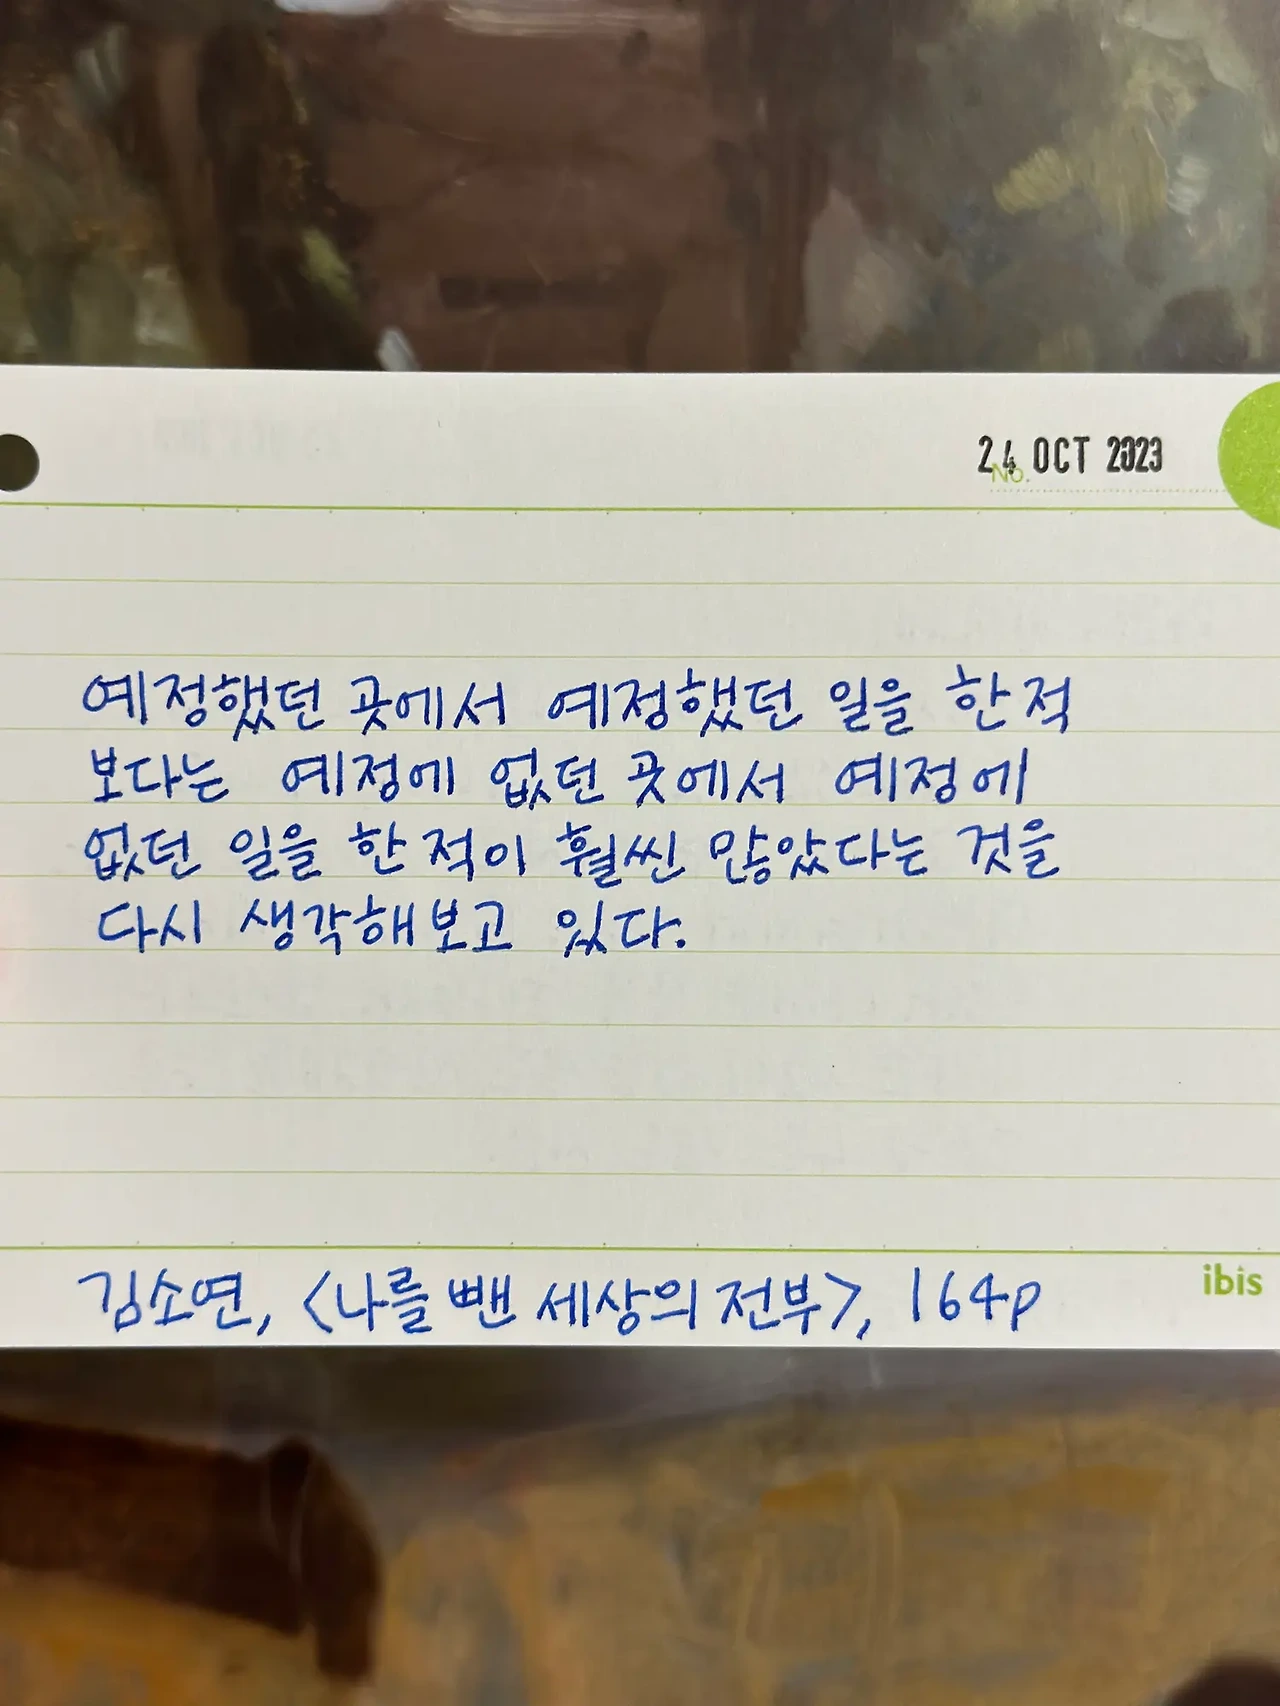 24 OCT 2023
No.
예정했던 곳에서 예정했던 일을 한 적
보다는 예정에 없던 곳에서 예정에
없던 일을 한 적이 훨씬 많았다는 것을
다시 생각해보고 있다.
ibis
김소연, <나를 뺀 세상의 전부>, 164p